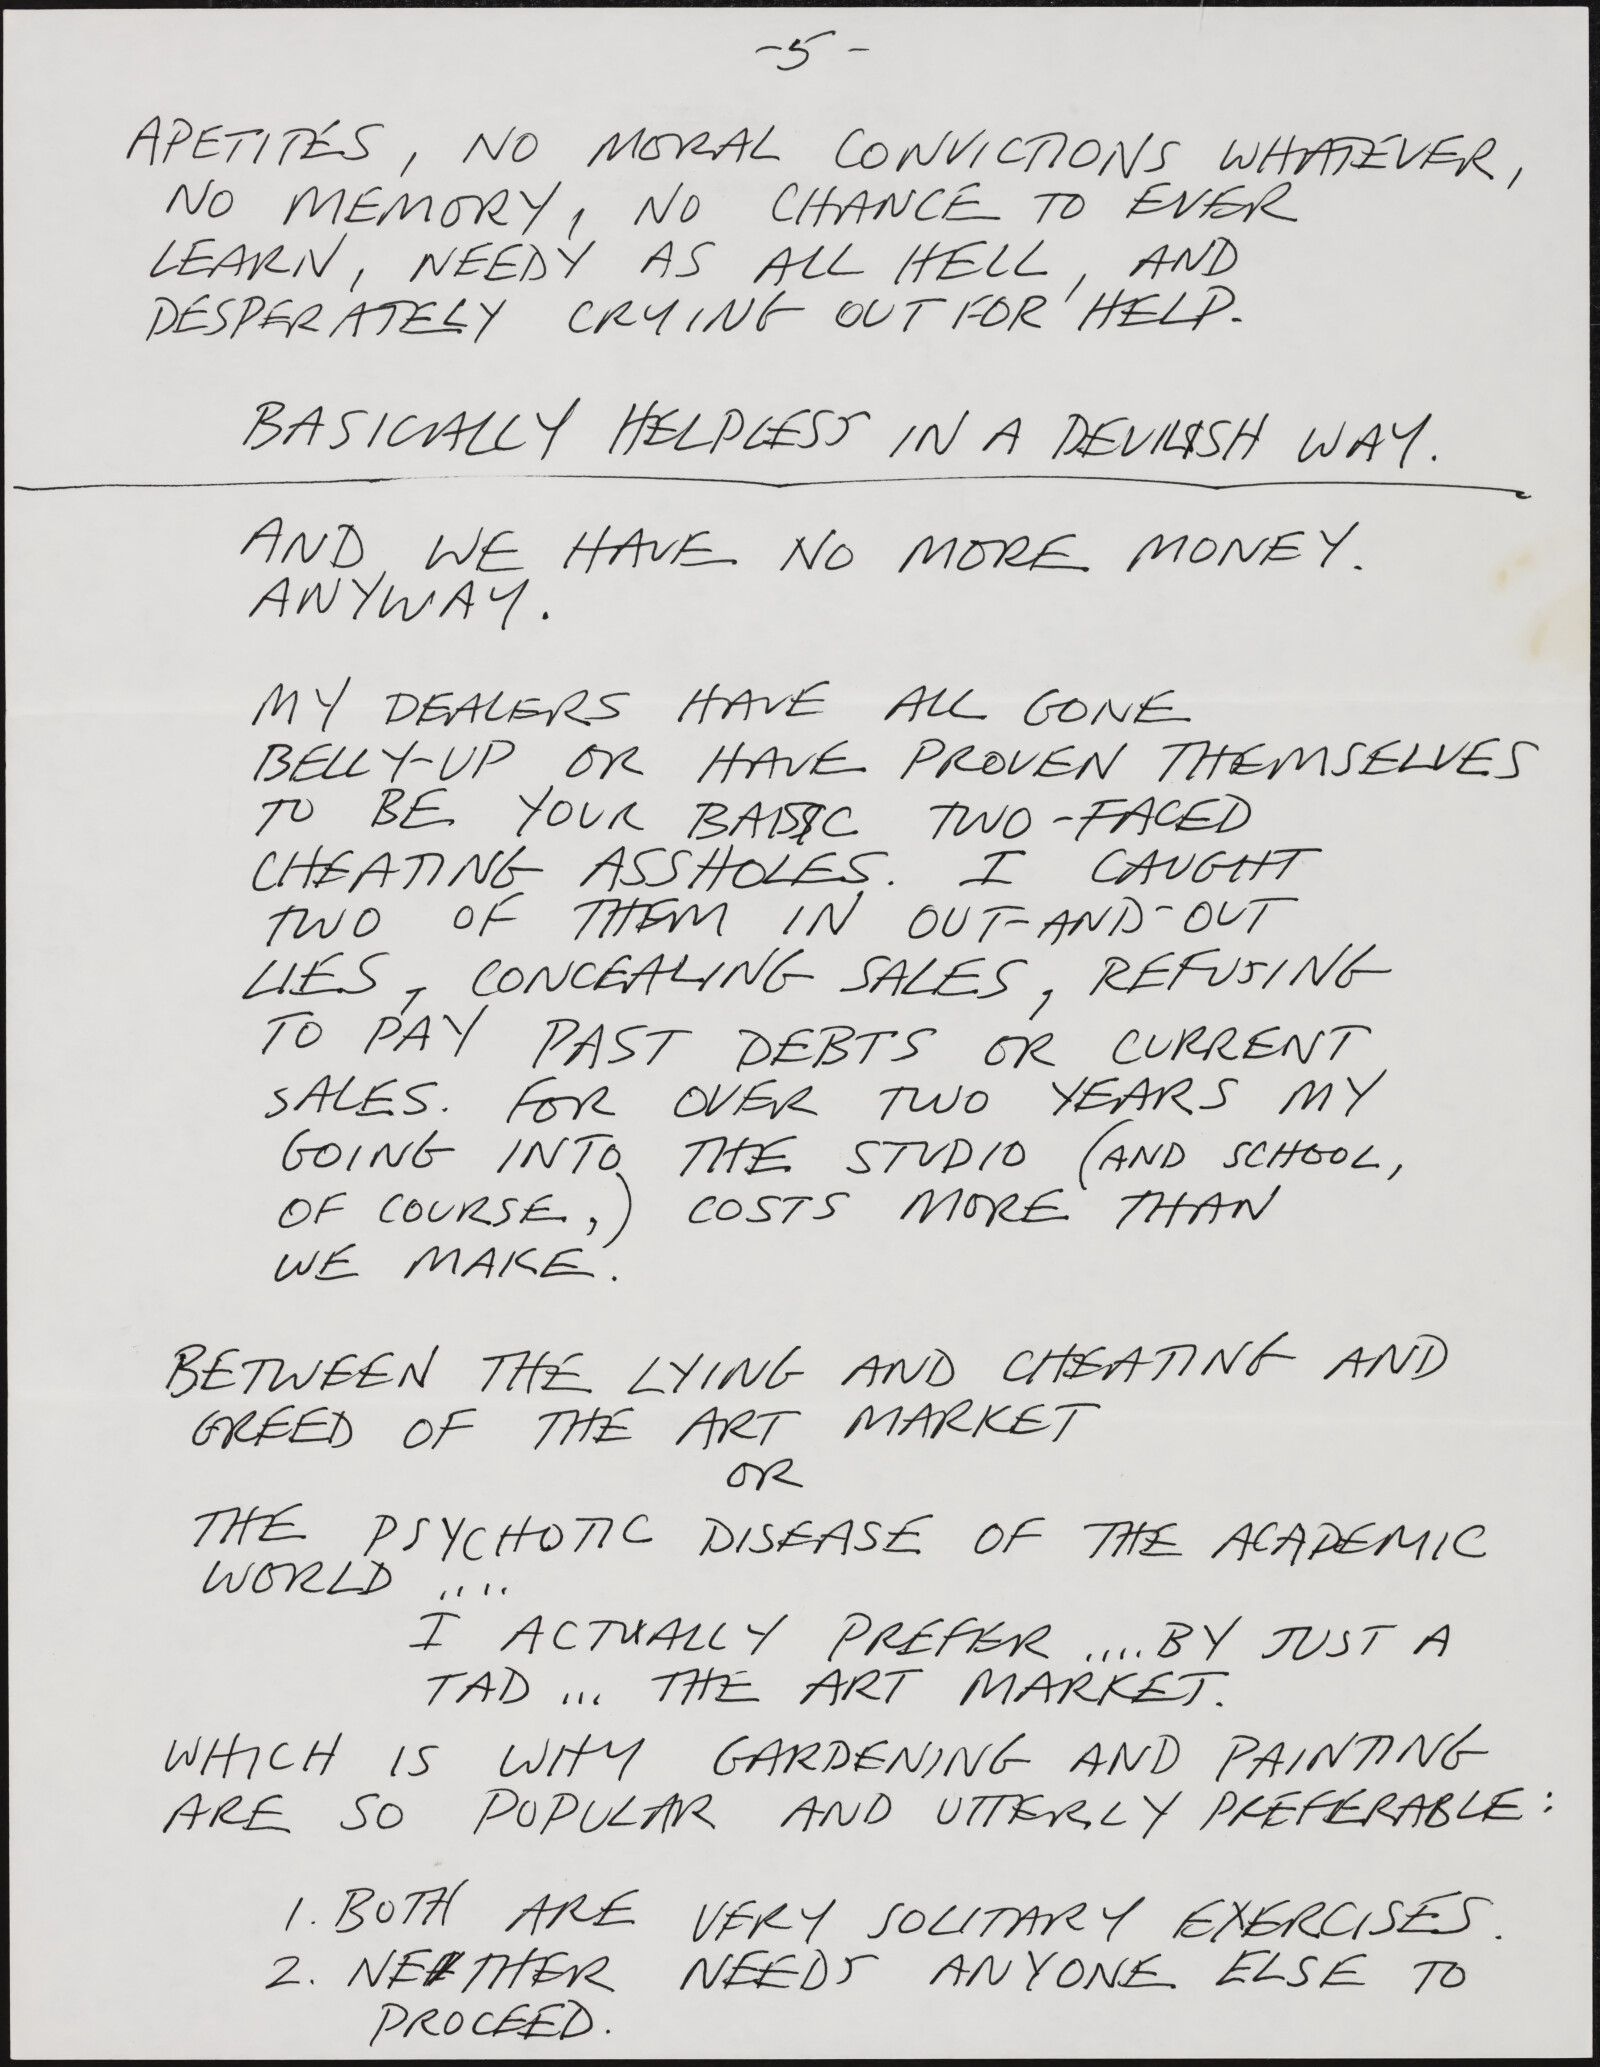 -5-
APETITES, NO MORAL CONVICTIONS WHATEVER,
NO MEMORY, NO CHANCE TO EVER
LEARN, NEEDY AS ALL HELL, AND
DESPERATELY CRYING OUT FOR HELP.
BASICALLY HELPLESS IN A DEVILISH WAY.
AND WE HAVE NO MORE MONEY.
ANYWAY.
MY DEALERS HAVE ALL GONE
BELLY-UP OR HAVE PROVEN THEMSELVES
TO BE YOUR BASIC TWO-FACED
CHEATING ASSHOLES. I CAUGHT
TWO OF THEM IN OUT-AND-OUT
LIES, CONCEALING SALES, REFUSING
TO PAY PAST DEBTS OR CURRENT
SALES. FOR OVER TWO YEARS MY
GOING INTO THE STUDIO (AND SCHOOL,
OF COURSE,) COSTS MORE THAN
WE MAKE.
BETWEEN THE LYING AND CHEATING AND
GREED OF THE ART MARKET
OR
THE PSYCHOTIC DISEASE OF THE ACADEMIC
WORLD ....
I ACTUALLY PREFER .... BY JUST A
TAD ... THE ART MARKET.
WHICH IS WHY GARDENING AND PAINTING
ARE SO POPULAR AND UTTERLY PREFERABLE:
1. BOTH ARE VERY SOLITARY EXERCISES.
2. NEITHER NEEDS ANYONE ELSE TO
PROCEED.